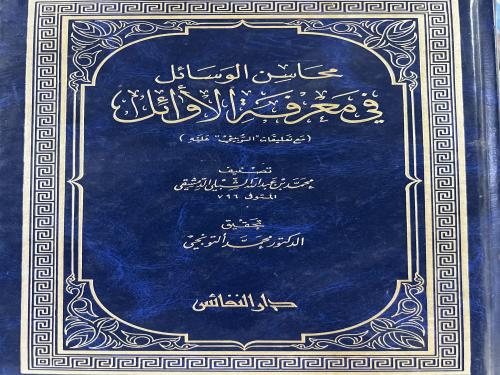 محاسن الوسائل
في معرفة الأوائل
(مع تعليقات "الزبيدي" عليه)
تصنيف
محمد بن عبد الله الشبلي الدمشقي
المتوفى ٧٦٩
تحقيق
الدكتور محمد ألتونجي
دار النفائس